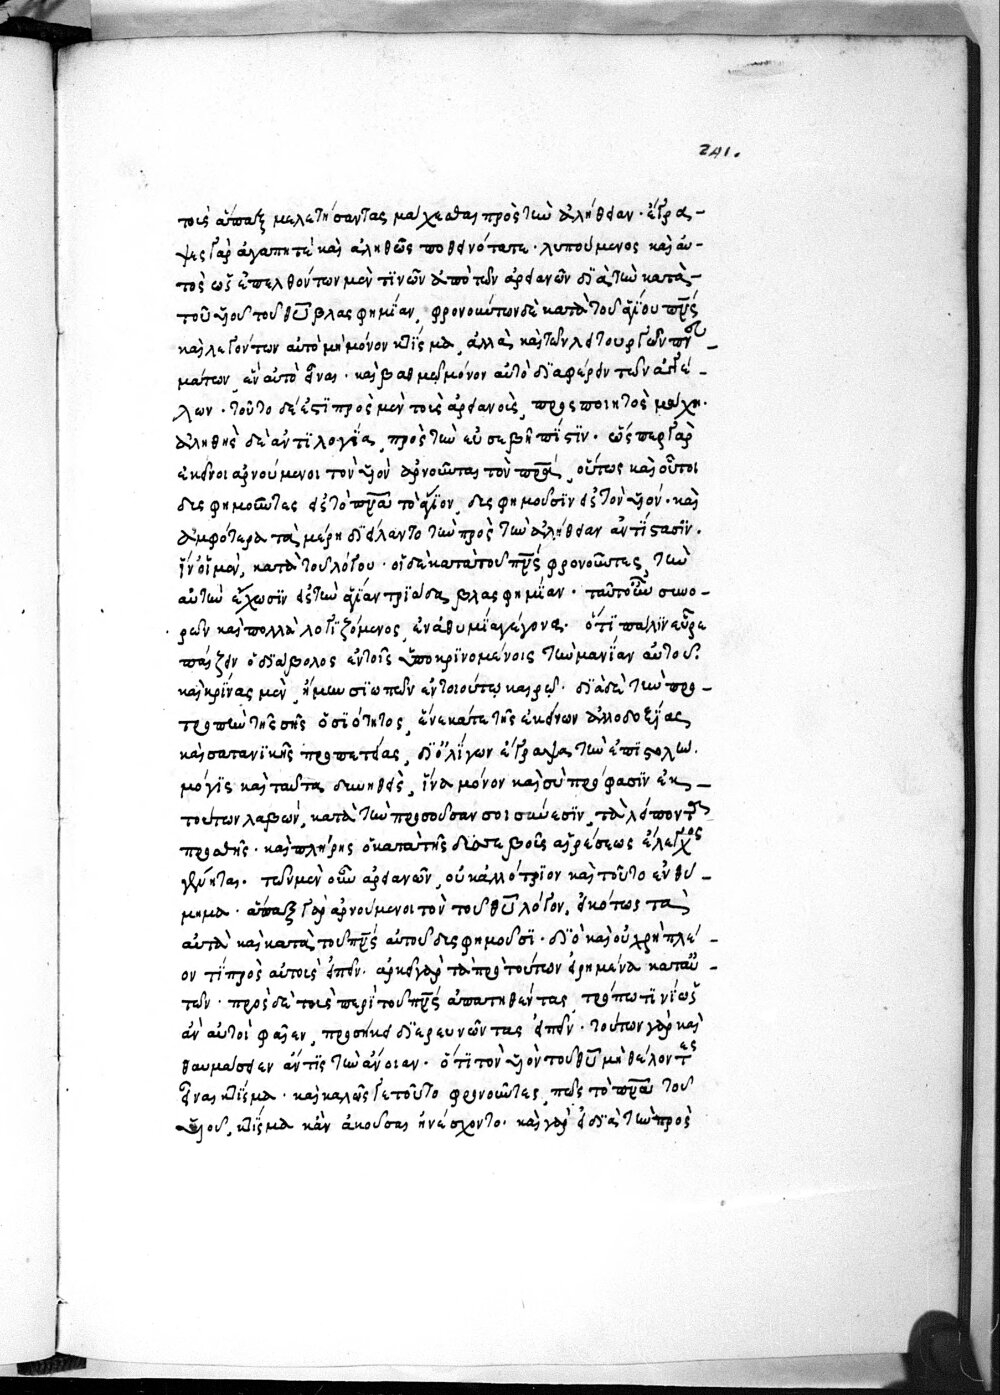 241.
τοις ἅπαξ μελετήσαντας μάχεσθαι πρὸς τὴν ἀλήθειαν· ἔγρα-
ψες γὰρ ἀγαπητὲ καὶ ἀληθῶς ποθεινότατε· λυπούμενος καὶ αὐ-
τὸς ὡς ἐξελθόντων μὲν τινῶν ἀπὸ τῶν ἀρειανῶν διὰ τὴν κατὰ
τοῦ υἱοῦ τοῦ θῦ βλασφημίαν, φρονούντων δὲ κατὰ τοῦ ἁγίου πνς
καὶ λεγόντων αὐτὸ μὴ μόνον κτίσμα, ἀλλὰ καὶ τῶν λειτουργικῶν πνευ-
μάτων, ἓν αὐτὸ εἶναι· καὶ βαθμῷ μόνον αὐτὸ διαφέρειν τῶν ἀγγέ-
λων· τοῦτο δέ ἐστι πρὸς μὲν τοὺς ἀρειανοὺς, προσποιητὸς μάχη·
ἀληθὴς δὲ ἀντιλογία, πρὸς τὴν εὐσεβῆ πίστιν· ὥσπερ γὰρ
ἐκεῖνοι ἀρνούμενοι τὸν υἱὸν ἀρνοῦνται τὸν πρα, οὕτως καὶ οὗτοι
δυσφημοῦντες εἰς τὸ πνα τὸ ἅγιον, δυσφημοῦσιν εἰς τὸν υἱόν· καὶ
ἀμφότερα τὰ μέρη διείλαντο τὴν πρὸς τὴν ἀλήθειαν ἀντίστασιν·
ἵν' οἱ μὲν, κατὰ τοῦ λόγου· οἱ δὲ κατὰ τοῦ πνς φρονοῦντες, τὴν
αὐτὴν ἔχωσιν εἰς τὴν ἁγίαν τριάδα βλασφημίαν· ταῦτα οὖν συνο-
ρῶν καὶ πολλὰ λογιζόμενος, ἐν ἀθυμίᾳ γέγονα· ὅτι πάλιν εὗρε
παίζειν ὁ διάβολος ἐν τοῖς ὑποκρινομένοις τὴν μανίαν αὐτοῦ·
καὶ κρίνας μὲν, ἤμην σιωπᾶν ἐν τοιούτῳ καιρῷ· διὰ δὲ τὴν προ-
τροπὴν τῆς σῆς ὁσιότητος, ἕνεκά τε τῆς ἐκείνων ἀλλοδοξίας
καὶ σατανικῆς προπετείας, δι' ὀλίγων ἔγραψα τὴν ἐπιστολὴν·
μόγις καὶ ταῦτα δυνηθεὶς, ἵνα μόνον καὶ σὺ πρόφασιν ἐκ
τούτων λαβὼν, κατὰ τὴν προσοῦσάν σοι σύνεσιν, τὰ λείποντα
προσθῇς· καὶ πλήρης ὁ κατὰ τῆς δυσσεβοῦς αἱρέσεως ἔλεγχος
γένηται· τῶν μὲν οὖν ἀρειανῶν, οὐκ ἀλλότριον καὶ τοῦτο ἐνθύ-
μημα· ἅπαξ γὰρ ἀρνούμενοι τὸν τοῦ θῦ λόγον, εἰκότως τὰ
αὐτὰ καὶ κατὰ τοῦ πνς αὐτοῦ δυσφημοῦσι· διὸ καὶ οὐ χρὴ πλέ-
ον τι πρὸς αὐτοὺς εἰπεῖν· ἀρκεῖ γὰρ τὰ πρὸ τούτων εἰρημένα κατ' αὐ-
τῶν· πρὸς δὲ τοὺς περὶ τοῦ πνς ἀπατηθέντας, τρόπῳ τινὶ ὡς
ἂν αὐτοὶ φαῖεν, προσήκει διερευνῶντας εἰπεῖν· τούτων γὰρ καὶ
θαυμάσειεν ἄν τις τὴν ἄνοιαν· ὅτι τὸν υἱὸν τοῦ θῦ μὴ θέλοντες
εἶναι κτίσμα· καὶ καλῶς γε τοῦτο φρονοῦντες, πῶς τὸ πνα τοῦ
υἱοῦ, κτίσμα κἂν ἀκοῦσαι ἠνέσχοντο· καὶ γὰρ εἰ διὰ τὴν πρὸς